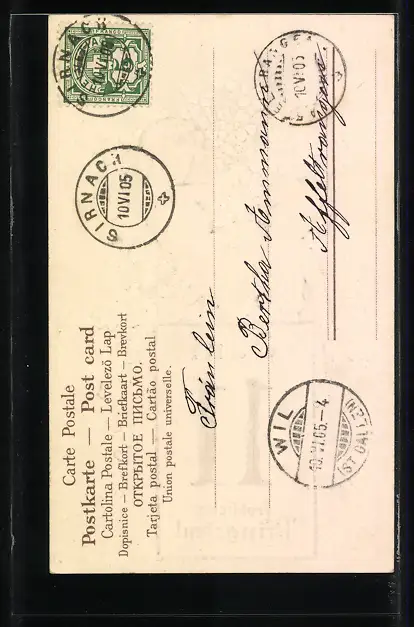 Carte Postale
Postkarte — Post card
Cartolina Postale — Levelező Lap
Dopisnice — Brefkort — Briefkaart — Brevkort
ОТКРЫТОЕ ПИСЬМО.
Tarjeta postal — Cartão postal
Union postale universelle.
FRANCO
SIRNACH
10 VI 05
SIRNACH
10 VI 05
10 VI 05
WIL
10.VI.05.-4
(ST GALL
Fräulein
Bertha Ammann
Affeltrangen